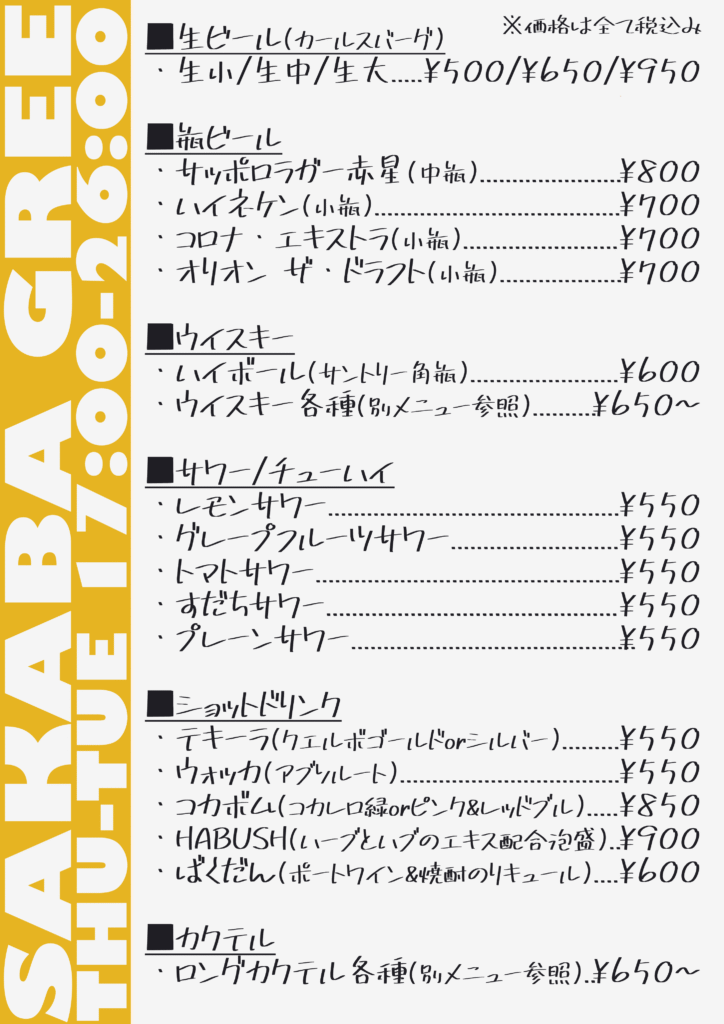 SAKABA GREE
THU-TUE 17:00-26:00
※価格は全て税込み
■生ビール(カールスバーグ)
・生小/生中/生大.....¥500/¥650/¥950
■瓶ビール
・サッポロラガー赤星(中瓶)......................¥800
・ハイネケン(小瓶)......................................¥700
・コロナ・エキストラ(小瓶)........................¥700
・オリオン ザ・ドラフト(小瓶)...................¥700
■ウイスキー
・ハイボール(サントリー角瓶).......................¥600
・ウイスキー各種(別メニュー参照).........¥650〜
■サワー/チューハイ
・レモンサワー.............................................¥550
・グレープフルーツサワー..........................¥550
・トマトサワー...............................................¥550
・すだちサワー.............................................¥550
・プレーンサワー..........................................¥550
■ショットドリンク
・テキーラ(クエルボゴールドorシルバー).........¥550
・ウォッカ(アブソルート)..................................¥550
・コカボム(コカレロ緑orピンク&レッドブル).....¥850
・HABUSH(ハーブとハブのエキス配合泡盛)..¥900
・ばくだん(ポートワイン&焼酎のリキュール)....¥600
■カクテル
・ロングカクテル各種(別メニュー参照)..¥650〜